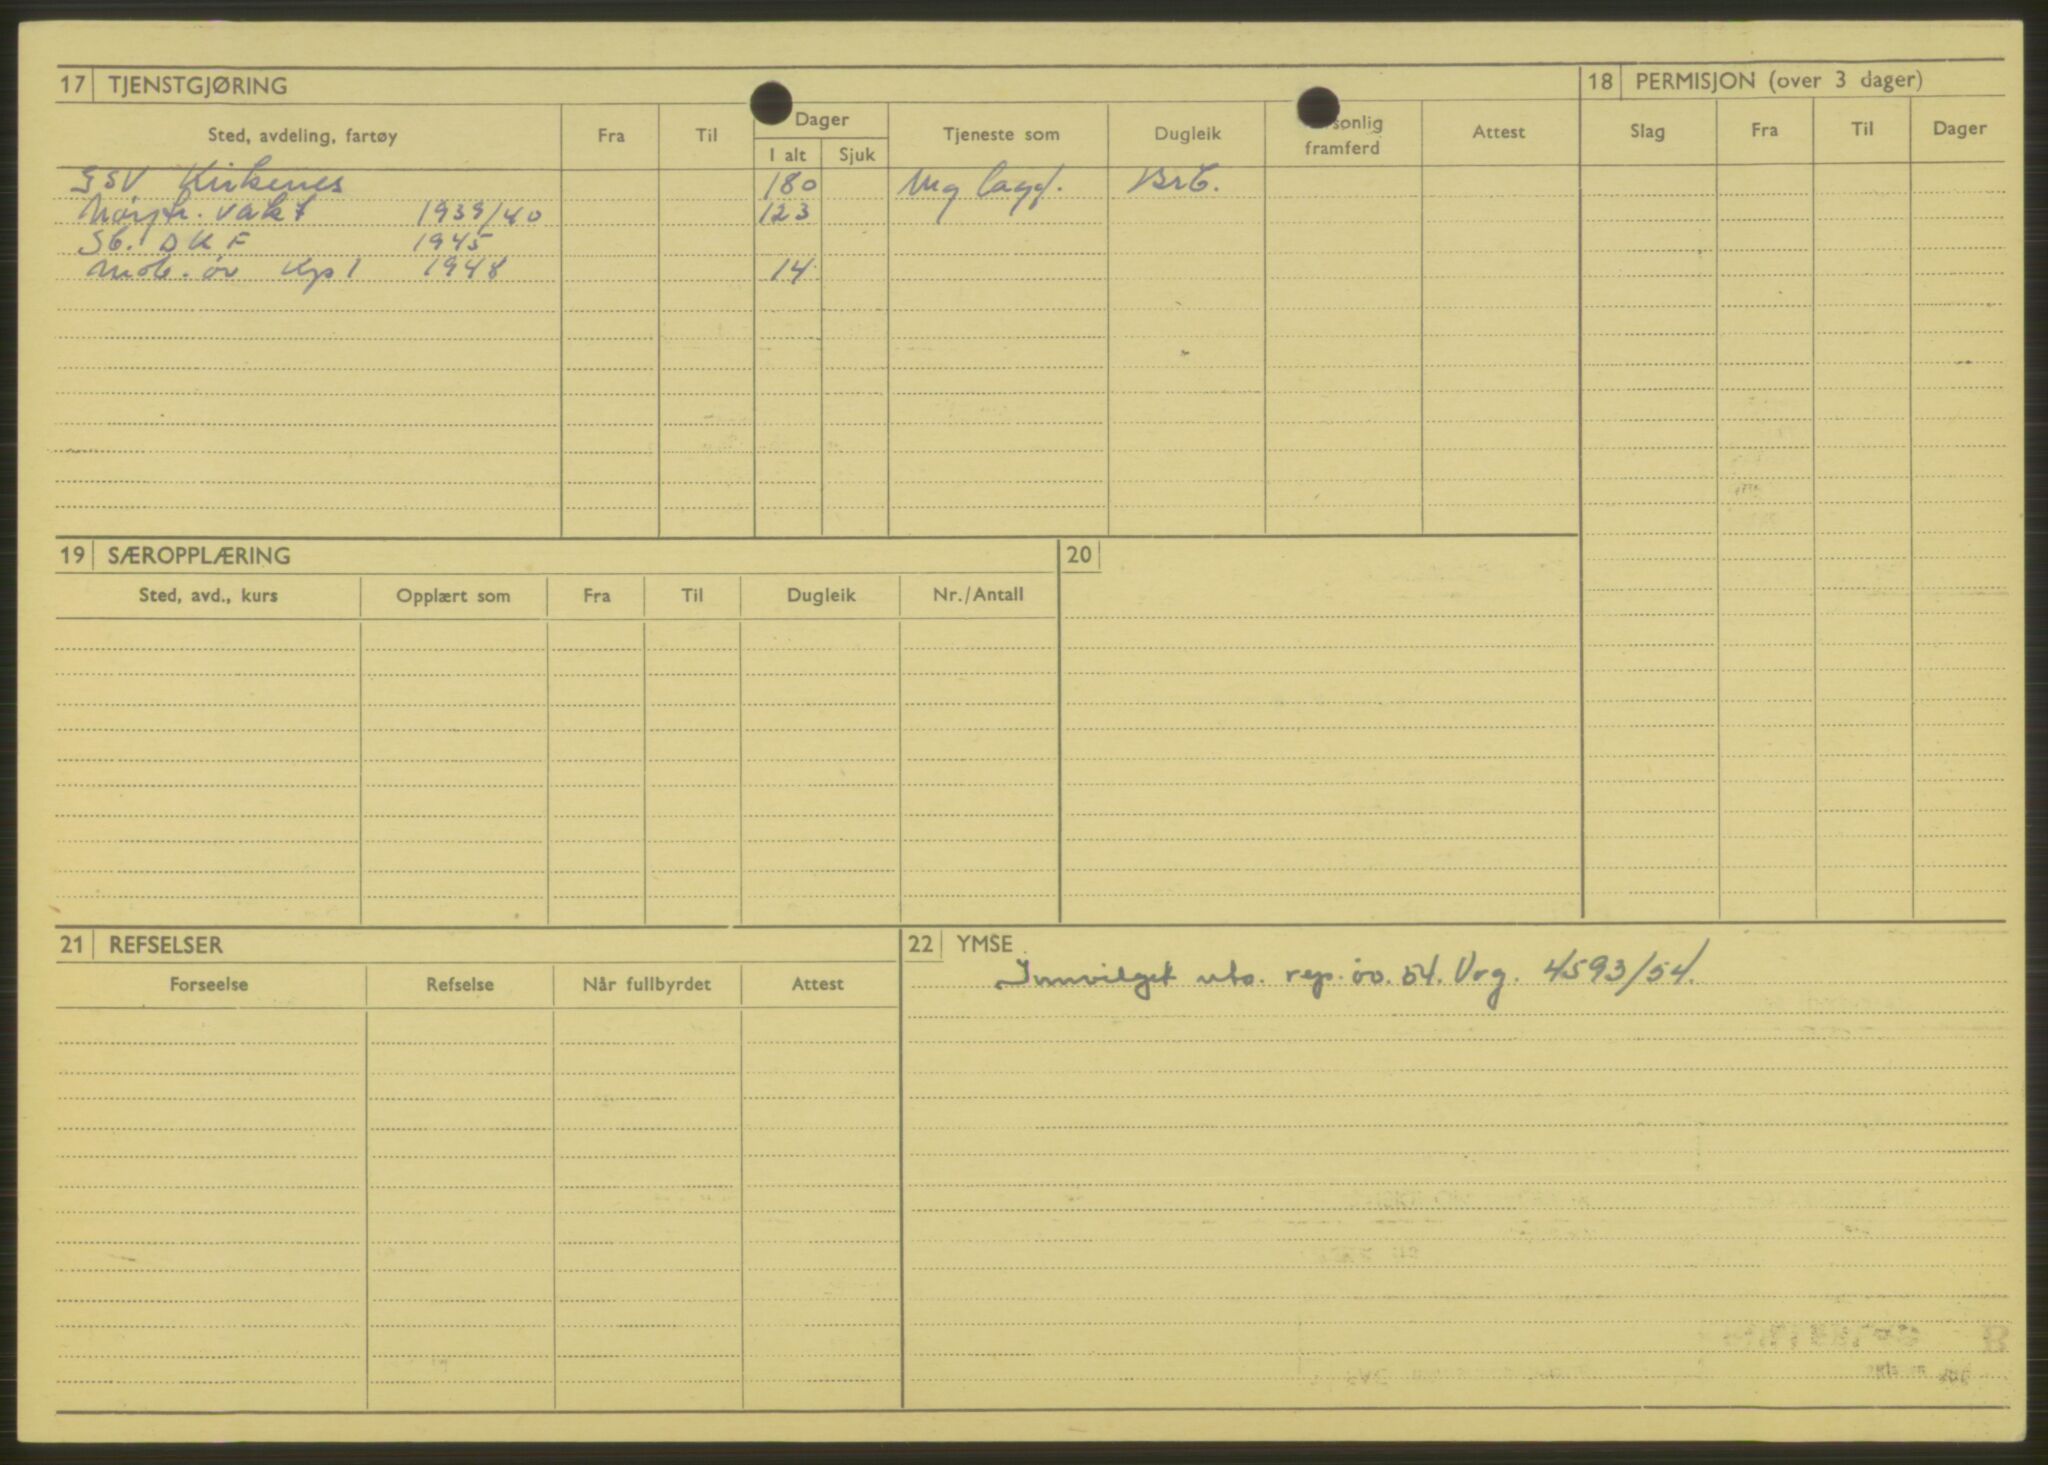 17 TJENSTGJØRING
Sted, avdeling, fartøy Fra Til Dager I alt Sjuk Tjeneste som Dugleik framferd Attest
GSV Kirkenes 180 Mg lagf. Brb.
Nøytr. vakt 1939/40 123
Sb. DKF 1945
Mob. øv Kp 1 1948 14
18 PERMISJON (over 3 dager)
Slag Fra Til Dager
19 SÆROPPLÆRING
Sted, avd., kurs Opplært som Fra Til Dugleik Nr./Antall
20
21 REFSELSER
Forseelse Refselse Når fullbyrdet Attest
22 YMSE
Innvilget uts. rep. øv. 54. Vrg. 4593/54.